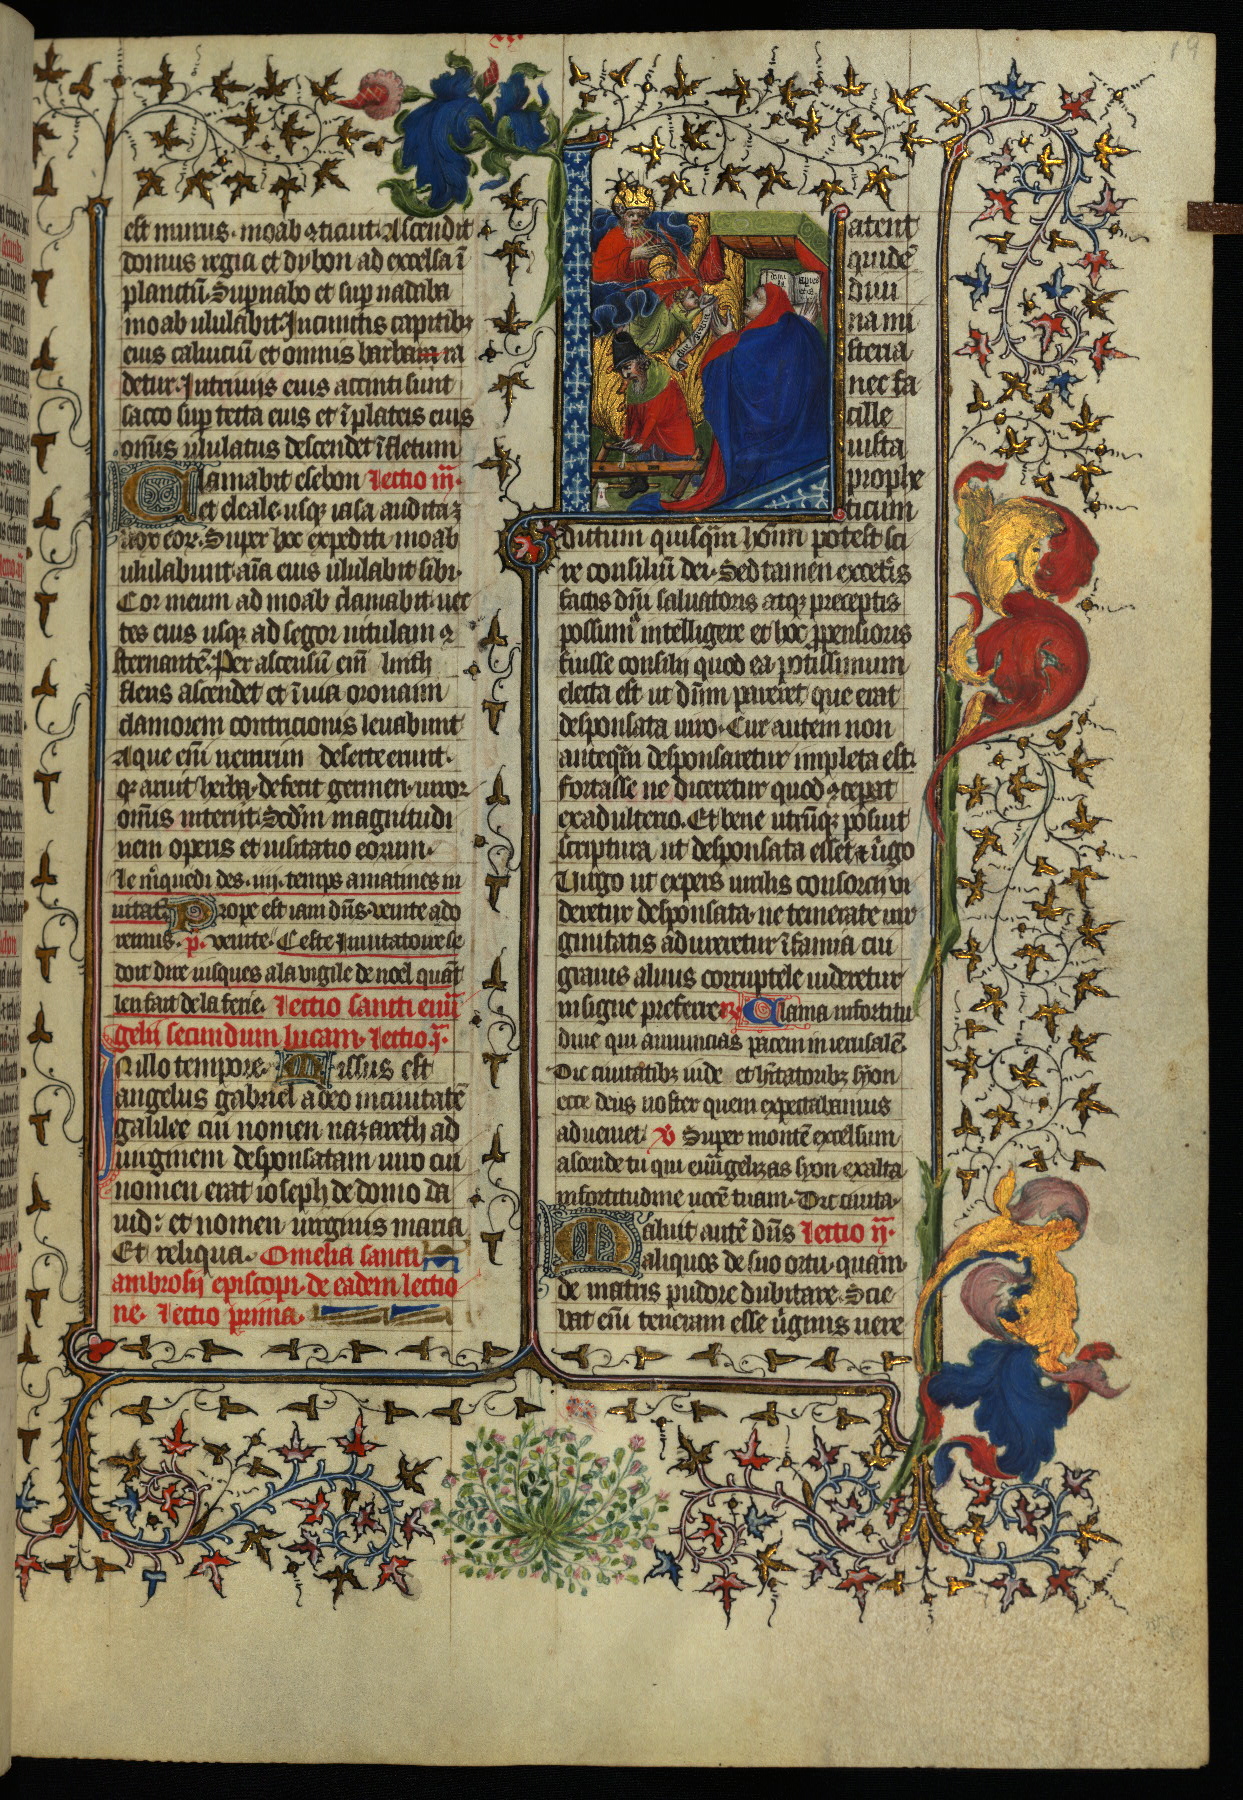 19
est murus · moab ꝯticuit · Ascendit
domus regia et dybon ad excelsa ī
planctū · Sup nabo et sup nadaba
moab ululabit · In cunctis capitibꝫ
eius caluiciū et omnis barba ra
detur · In triviis eius accincti sunt
sacco sup tecta eius et ī plateis eius
om̄is ululatus descendet ī fletum
Clamabit esebon Lectio iii·
et eleale · usqꝫ iasa audita ē
vox eoꝝ · Super hoc expediti moab
ululabunt · aīa eius ululabit sibi·
Cor meum ad moab clamabit · vec
tes eius usqꝫ ad segor uitulam ꝯ
sternantē · Per ascensū em̄ luith
flens ascendet et ī uia oronaim
clamorem contricionis leuabunt
Aque em̄ nemrim deserte erunt·
qꝛ aruit herba · defecit germen · viror
om̄is interiit · Scd̄m magnitudi
nem operis et uisitatio eorum·
Le m̄quedi des · iiii · temps a matines in
uitat· Prope est iam dn̄s · venite ado
remus · p̄· venite · Ceste Inuitatoire se
doit dire iusques a la vigile de noel quāt
len fait de la ferie · Lectio sancti euā
gelii secundum lucam · Lectio i·
In illo tempore · Missus est
angelus gabriel a deo in ciuitatē
galilee cui nomen nazareth ad
uirginem desponsatam uiro cui
nomen erat ioseph de domo da
uid : et nomen uirginis maria
Et reliqua · Omelia sancti
ambrosii episcopi · de eadem lectio
ne · Lectio prima·
Latent
quidē
diui
na mi
steria
nec fa
cille
iuxta
prophe
ticum
dictum quisqm̄ hom̄ potest sci
re consiliū dei · Sed tamen ex cet̄is
factis dn̄i saluatoris atqꝫ preceptis
possumꝰ intelligere et hoc ꝓpensioris
fuisse consilii quod ea potissimum
electa est ut dn̄m pareret que erat
desponsata uiro · Cur autem non
anteqm̄ desponsaretur impleta est·
fortasse ne diceretur quod ꝯceperat
ex adulterio · Et bene utrūqꝫ posuit
scriptura ut desponsata esset et ūgo
Virgo ut expers uirilis consorcii vi
deretur desponsata · ne temerate uir
ginitatis adureretur īfamia cui
grauis aluus corruptele uideretur
insigne preferre ℟ Clama in fortitu
dine qui annuncias pacem in ierusalē·
Dic ciuitatibꝫ iude et hītatoribꝫ syon
ecce deus noster quem expectabamus
adueniet · ℣ Super montē excelsum
ascende tu qui euāgelizas syon exalta
in fortitudine uocē tuam · Dic ciuita·
Maluit autē dn̄s Lectio ii·
aliquos de suo ortu · quam
de matris pudore dubitare · Scie
bat em̄ teneram esse ūginis uere